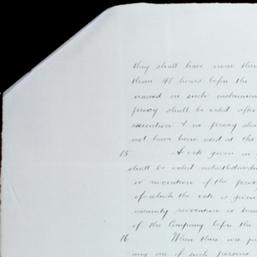 they shall have more than
than 48 hours before the
named in such instrument
proxy shall be valid after
execution & no proxy shall
not have been used at the
15 A vote given in
shall be valid notwithstanding
or revocation of the proxy
of which the vote is given
revocation or
of the Company before the
16 When there are
any one of such persons